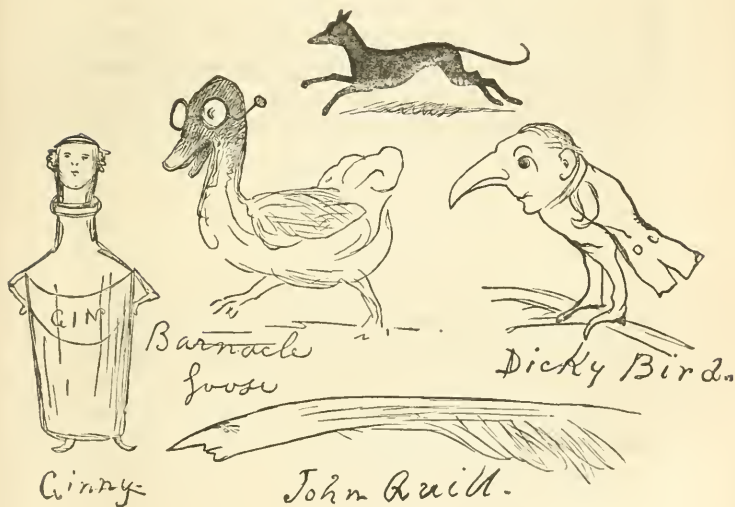 GIN
Barnacle
Goose
Dicky Bird.
Ginny-
John Quill.